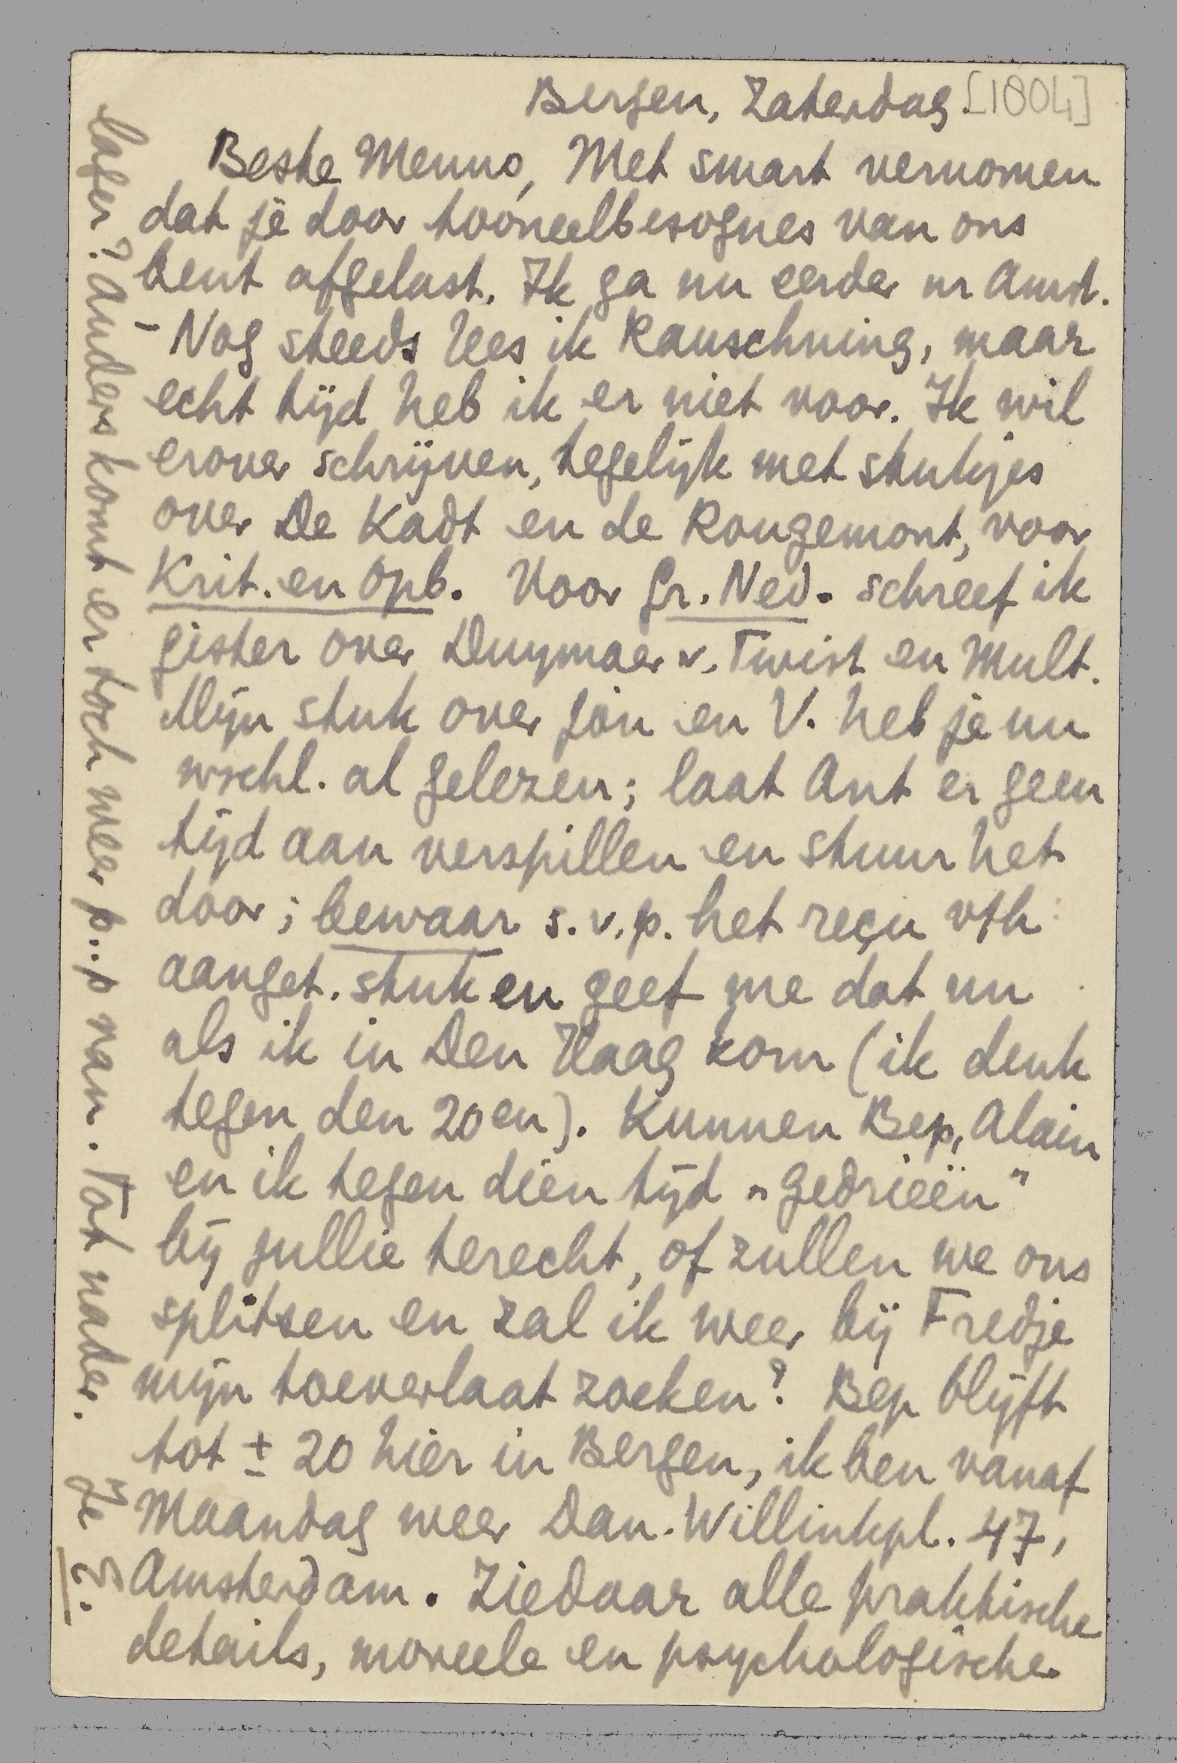 Bergen, Zaterdag. [1804]
Beste Menno, Met smart vernomen
dat je door tooneelbesognes van ons
bent afgelast. Ik ga nu eerder nr Amst.
- Nog steeds lees ik Rauschning, maar
echt tijd heb ik er niet voor. Ik wil
erover schrijven, tegelijk met stukjes
over De Kadt en de Rougemont, voor
Krit. en Opb. Voor Gr. Ned. schreef ik
gister over Duymaer v. Twist en Mult.
Mijn stuk over Jan en V. heb je nu
wschl. al gelezen; laat Ant er geen
tijd aan verspillen en stuur het
door; bewaar s.v.p. het reçu vth
aanget. stuk en geef me dat nu
als ik in Den Haag kom (ik denk
tegen den 20en). Kunnen Bep, Alain
en ik tegen dien tijd „gedrieën”
bij jullie terecht, of zullen we ons
splitsen en zal ik weer bij Fredje
mijn toeverlaat zoeken? Bep blijft
tot ± 20 hier in Bergen, ik ben vanaf
Maandag weer Dan. Willinkpl. 47,
Amsterdam. Ziedaar alle praktische
details, moreele en psychologische
later? Anders komt er toch weer p..p van. Tot nader.
Je E.